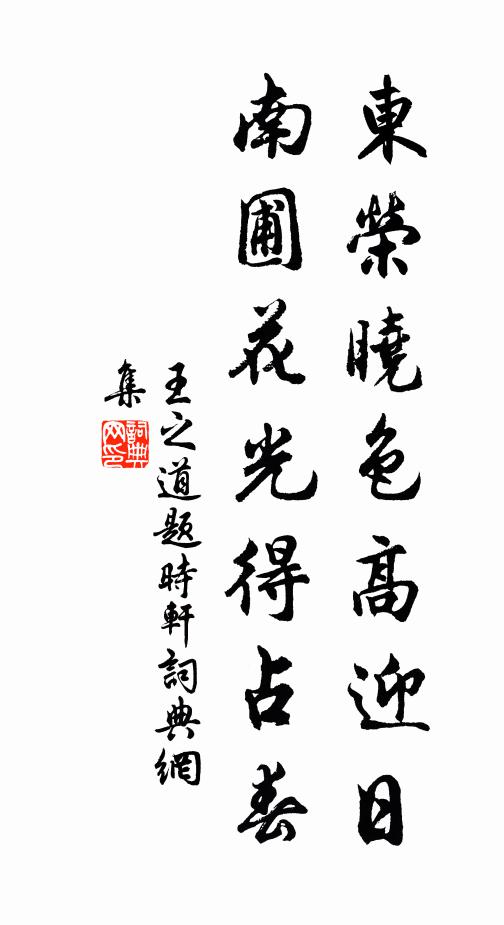 東榮曉色高迎日
南圃花光得占春
王之道題時軒詞典網
集
詞典
网印